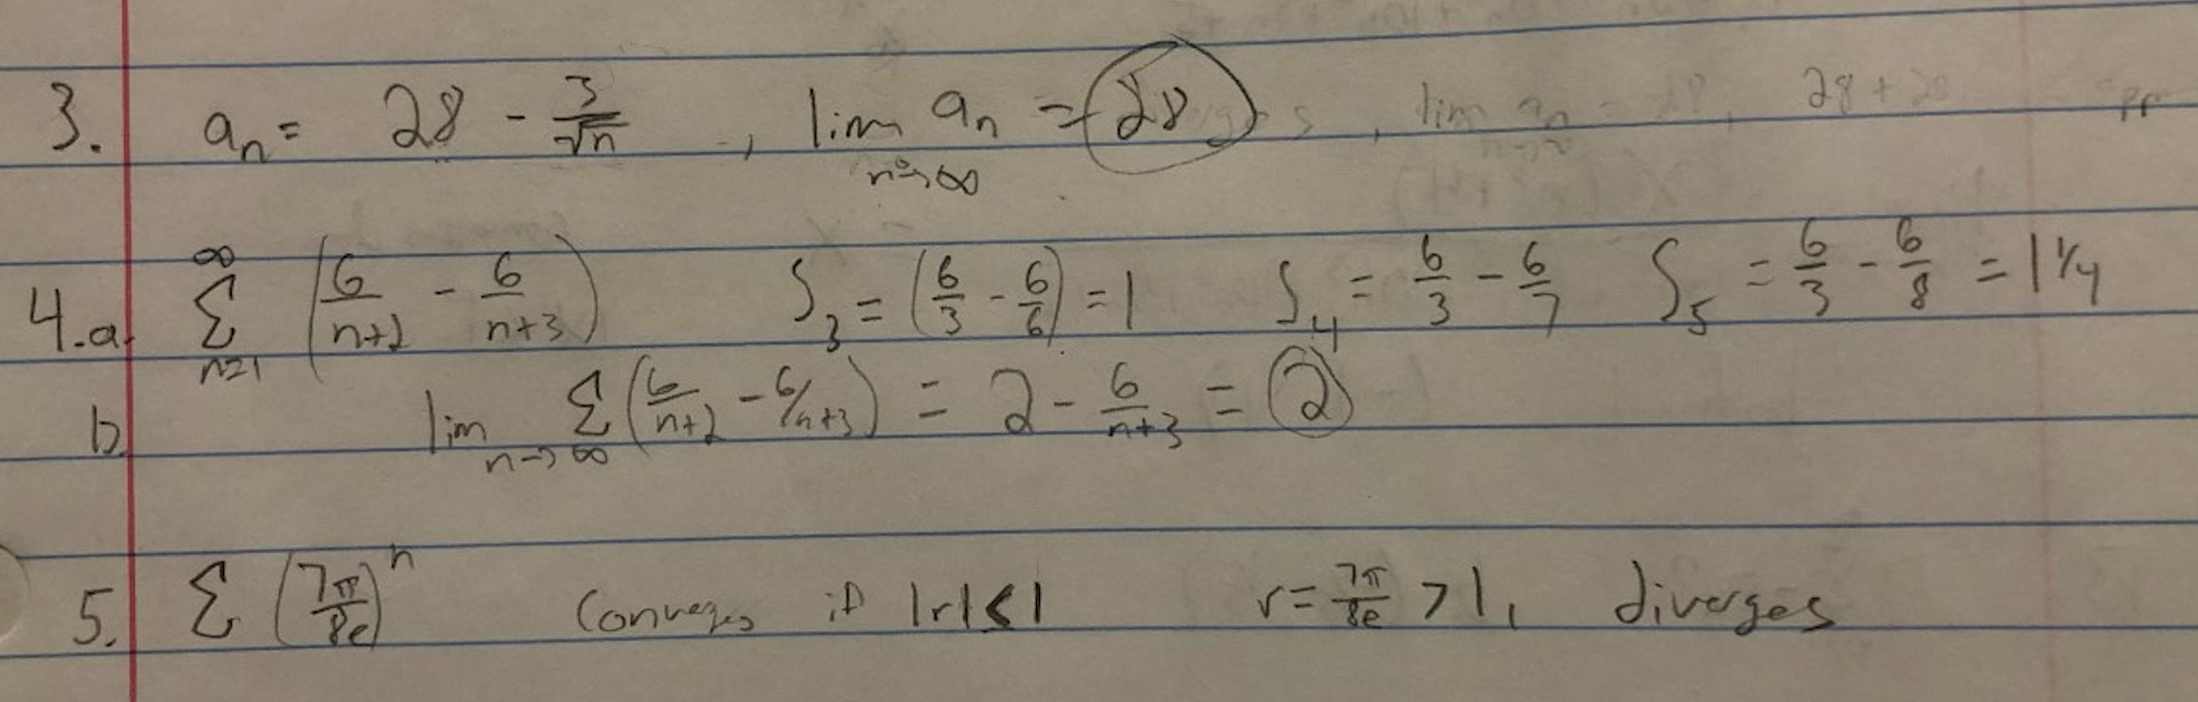 3. aₙ = 28 - 3/√n , lim n→∞ aₙ = 28
4.a. ∞ Σ n=1 (6/n+2 - 6/n+3) S₃ = (6/3 - 6/6) = 1 S₄ = 6/3 - 6/7 S₅ = 6/3 - 6/8 = 1 1/4
b. lim n→∞ Σ (6/n+2 - 6/n+3) = 2 - 6/n+3 = 2
5. Σ (7π/8e)ⁿ Converges if |r|<1 r = 7π/8e > 1, diverges